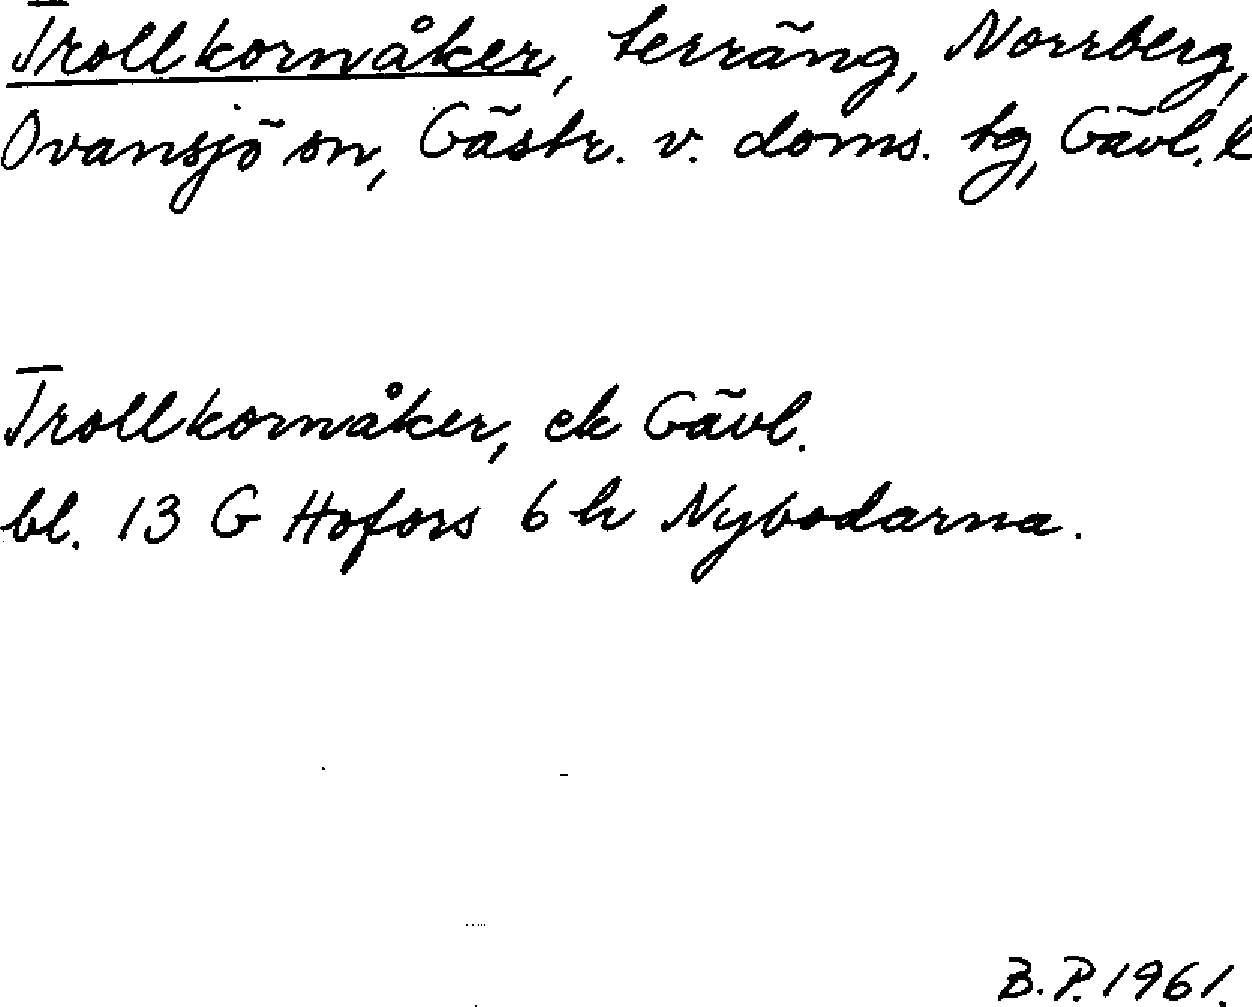 Trollkornåker, terräng, Norrberg,
Ovansjö sn, Gästr. v. doms. tg, Gävl. l
Trollkornåker, ek Gävl.
bl. 13 G Hofors 6 h Nybodarna.
B. P. 1961.